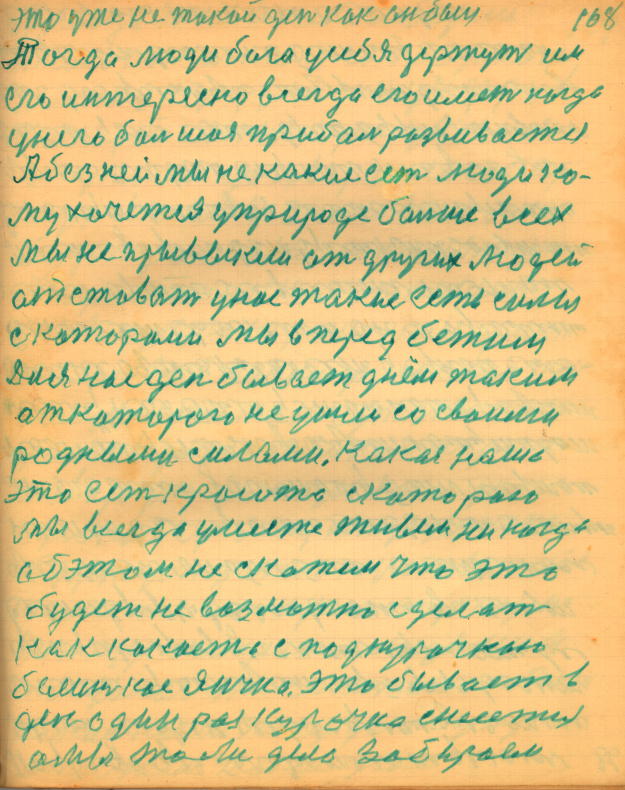 это уже не такой ден как он был 168
Тогда люди бога у себя держут им
его интересно всегда его имет когда
у него болшая прибал развивается
А без ней мы не какие ест люди ко-
му хочется у природе болше всех
мы не прывыкли от других людей
отстоват у нас такие есть силы
с которами мы вперед бежим
Для нас ден бывает днём таким
от которого не ушли со своими
родными силами. Какая наша
это ест красота с которою
мы всегда умести живем никогда
об этом не скажем что это
будет не возможно сделат
как какоета с под курочкаю
белинкое яичко. Это бывает в
ден один раз курочка снесется
а мы то ли дело забираем